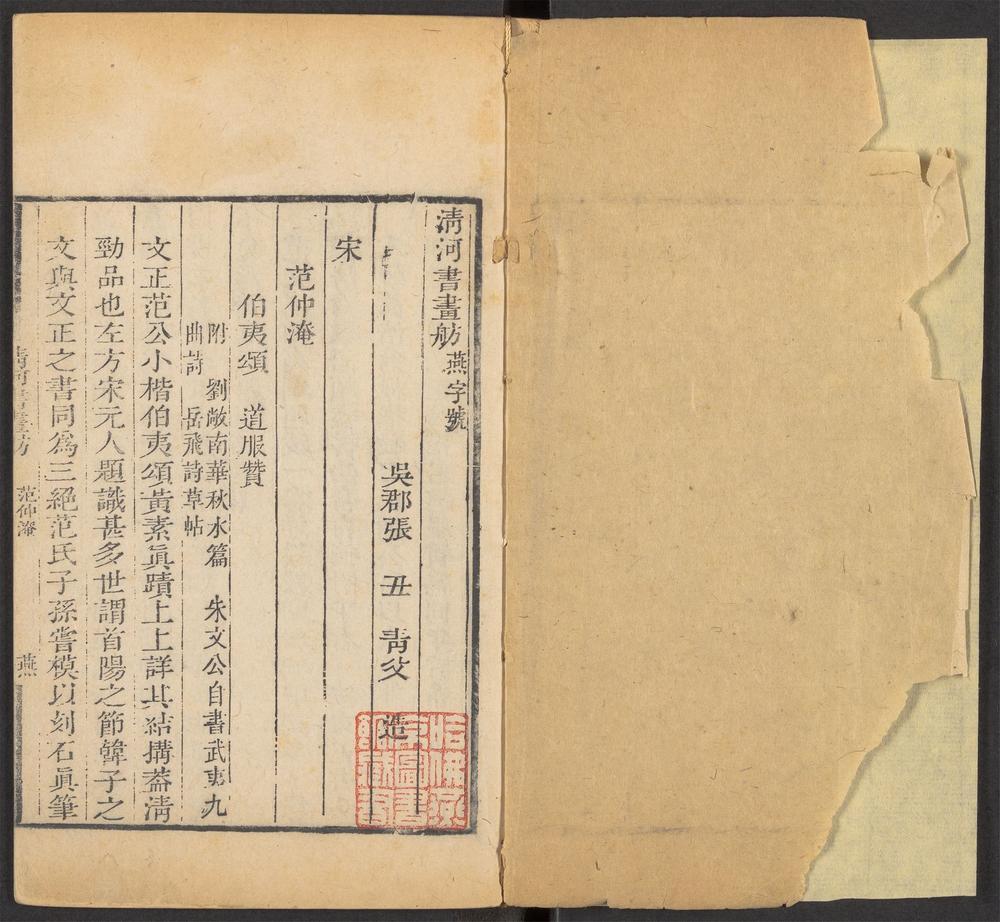 清河書畫舫燕字號
吳郡張丑青父造
宋
范仲淹
伯夷頌　道服贊
附　劉敞南華秋水篇　朱文公自書武夷九
曲詩　岳飛詩草帖
文正范公小楷伯夷頌黃素眞蹟上上詳其結搆葢淸
勁品也左方宋元人題識甚多世謂首陽之節韓子之
文與文正之書同爲三絕范氏子孫嘗模以刻石眞筆
清河書畫舫　范仲淹　燕
哈佛燕
京圖書
館藏書